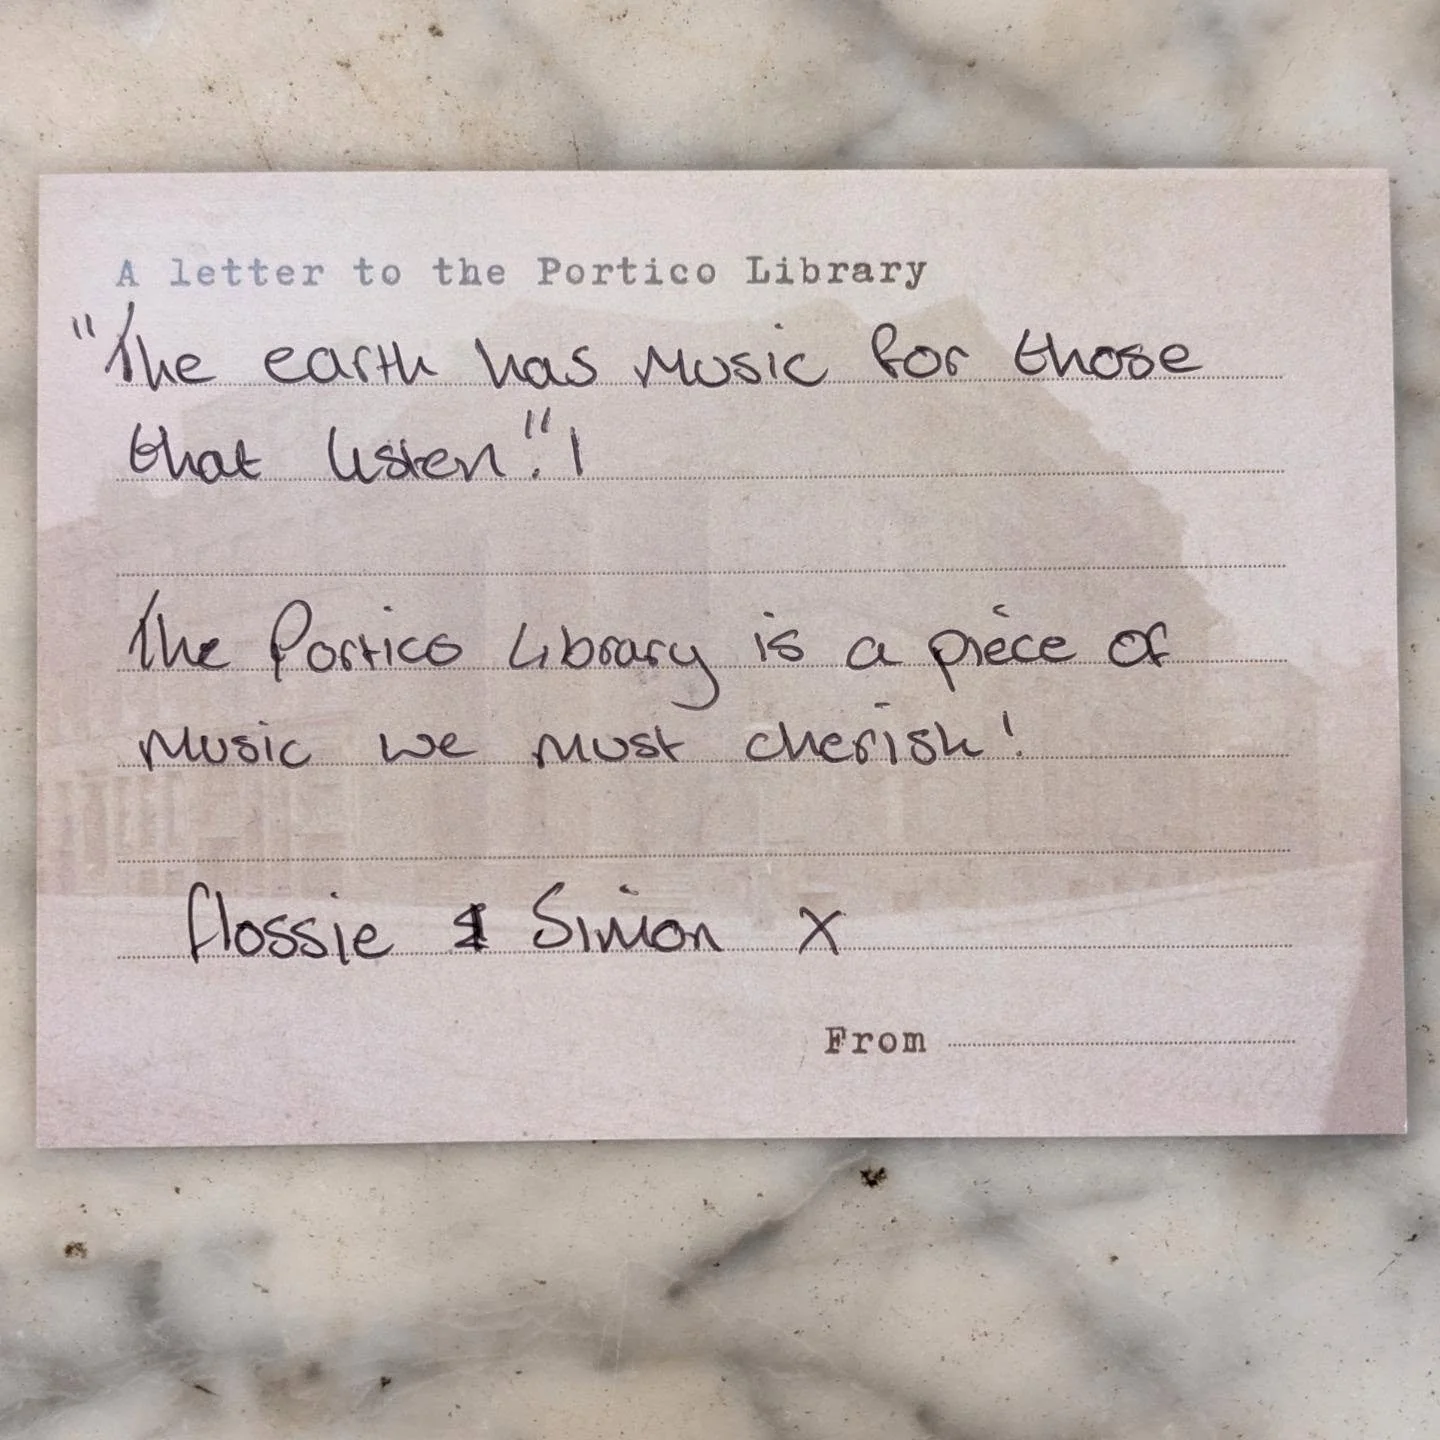 A letter to the Portico Library
"The earth has music for those
that listen".!
The Portico Library is a piece of
music we must cherish!
Flossie & Simon X
From